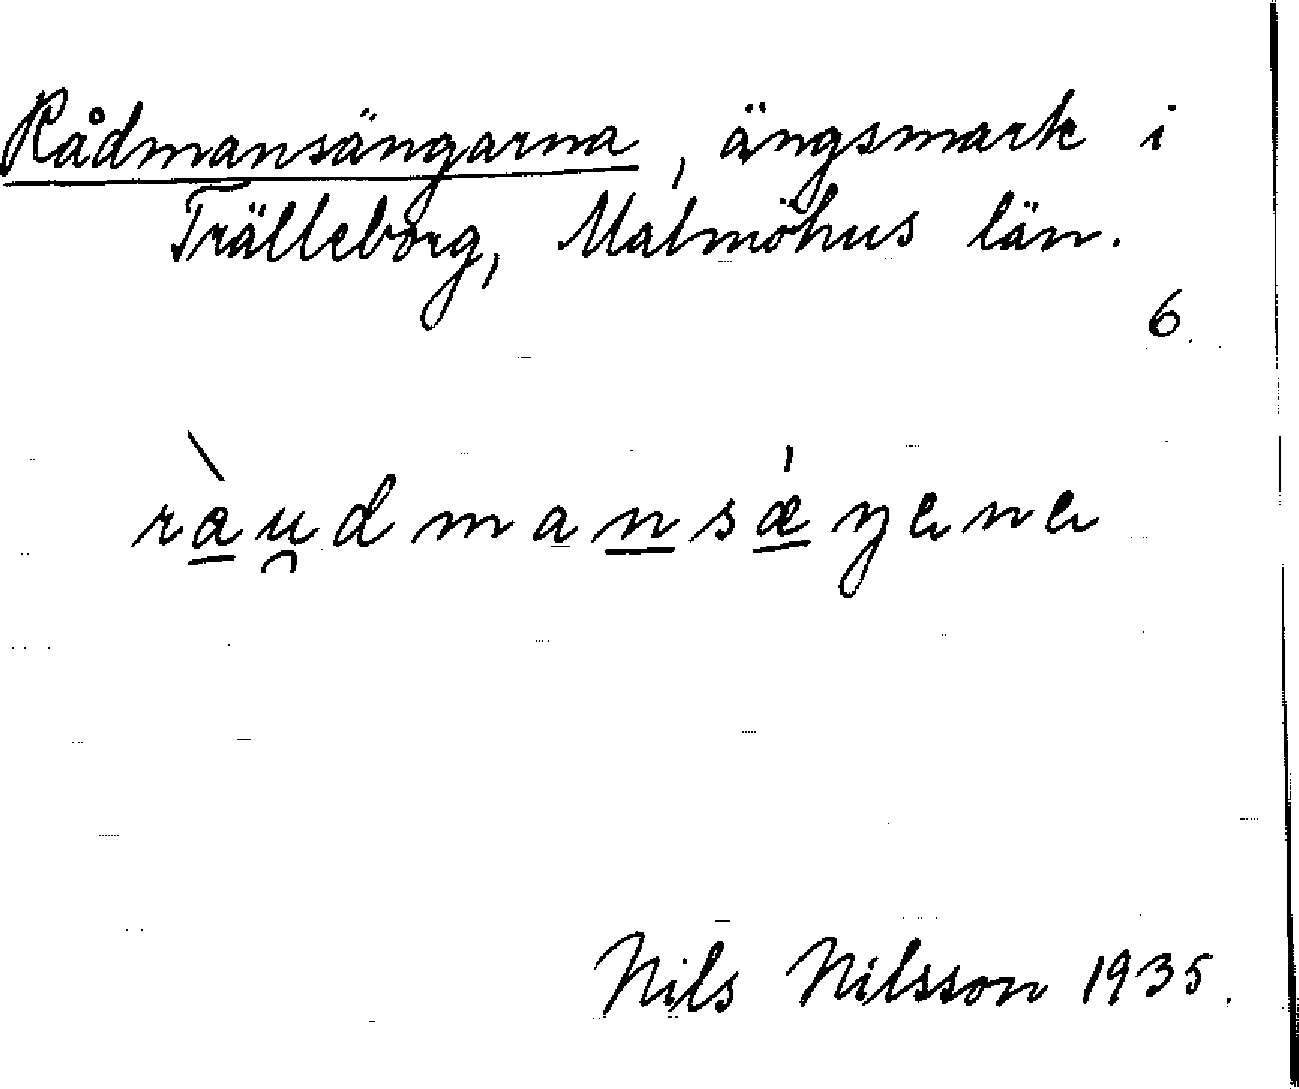 Rådmansängarna, ängsmark i
Trälleborg, Malmöhus län.
6.
ràu̯dmansǽŋene
Nils Nilsson 1935.